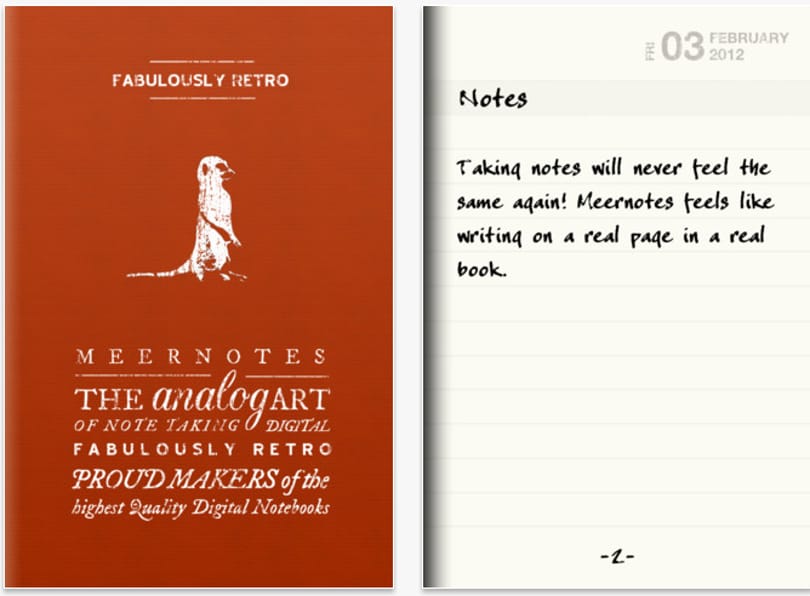 FABULOUSLY RETRO
MEERNOTES
THE analog ART
OF NOTE TAKING DIGITAL
FABULOUSLY RETRO
PROUD MAKERS of the
highest Quality Digital Notebooks
FRI 03 FEBRUARY
2012
Notes
Taking notes will never feel the
same again! Meernotes feels like
writing on a real page in a real
book.
-2-